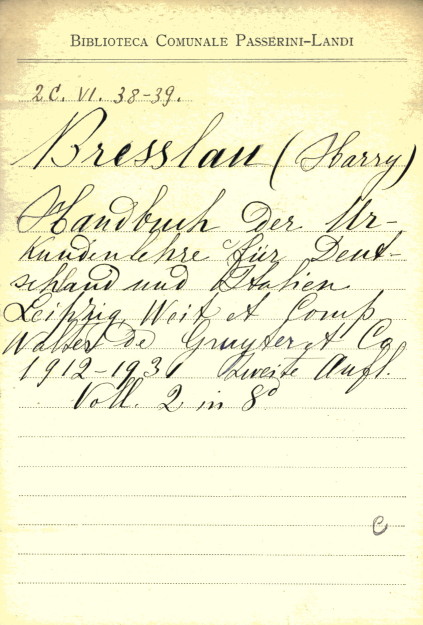 BIBLIOTECA COMUNALE PASSERINI-LANDI
2C. VI. 38-39.
Bresslau (Harry)
Handbuch der Ur-
kundenlehre für Deut-
schland und Italien
Leipzig Veit et Comp
Walter de Gruyter et Co
1912-1931 Zweite Aufl.
Voll. 2 in 8°
C